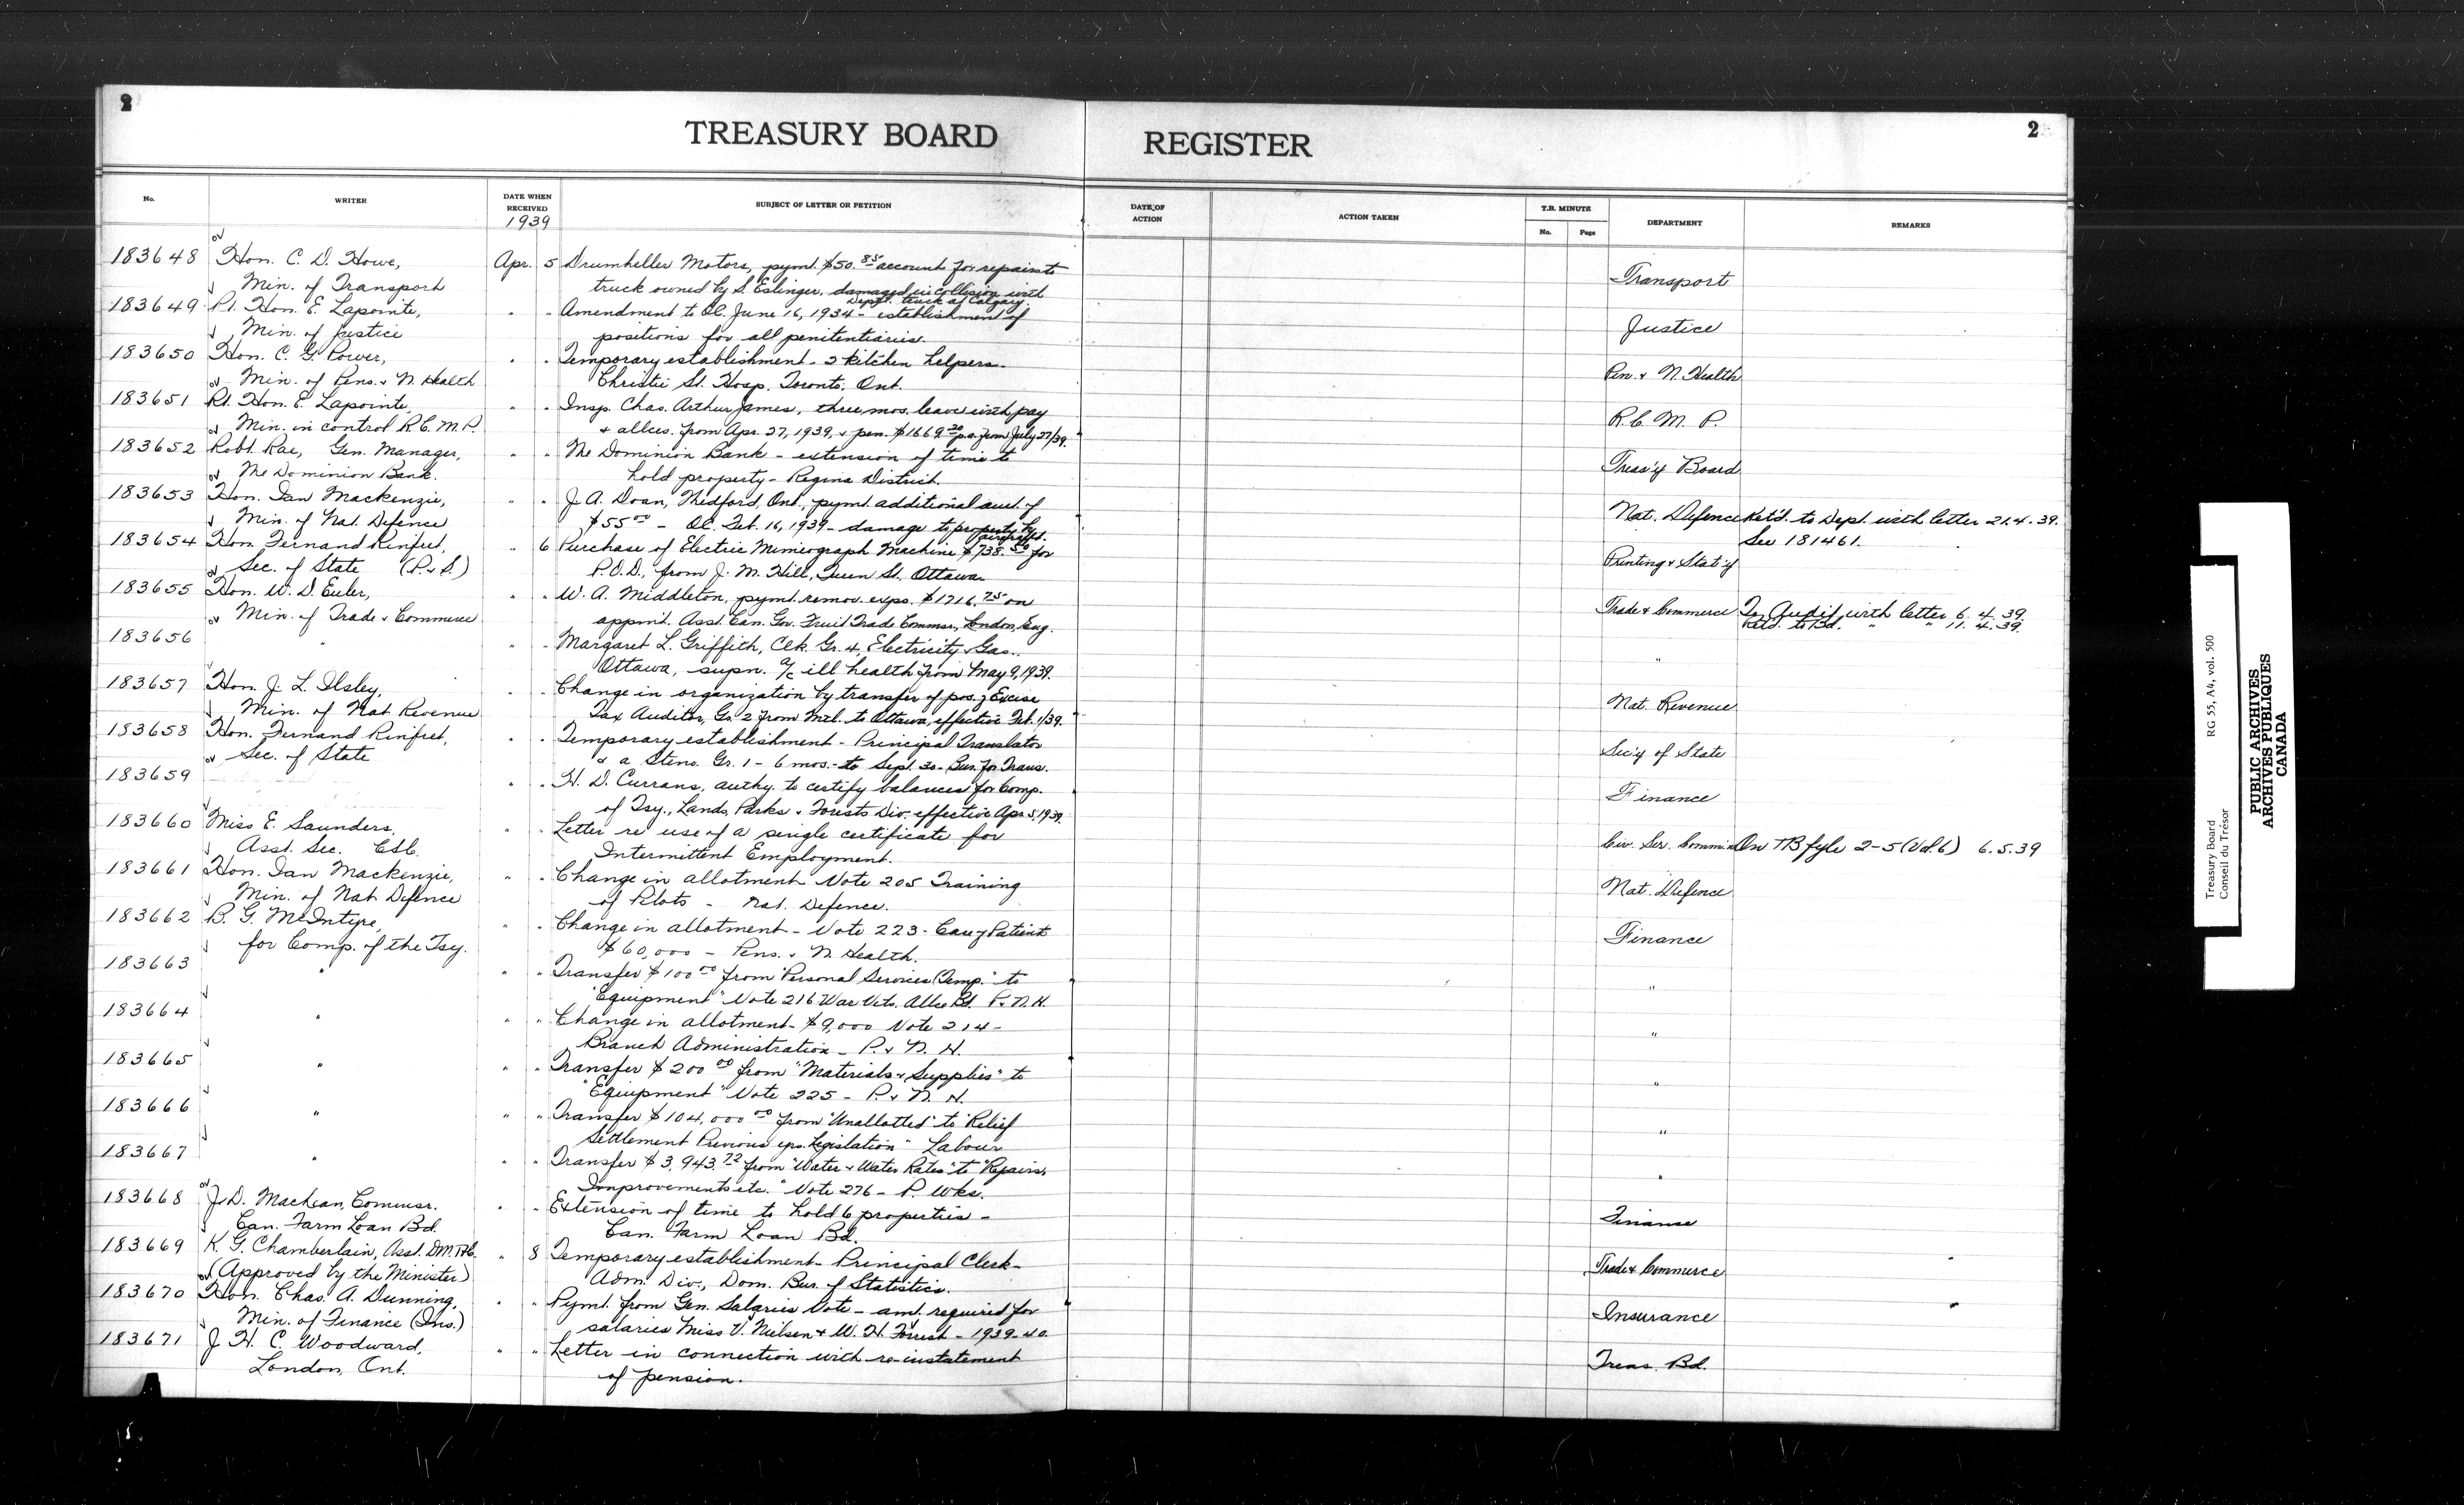 2
2
TREASURY BOARD REGISTER
No. WRITER DATE WHEN RECEIVED SUBJECT OF LETTER OR PETITION DATE OF ACTION ACTION TAKEN T.B. MINUTE No. Page DEPARTMENT REMARKS
1939
183648 Hon. C. D. Howe, Apr. 5 Drumheller Motors, pymt. $50.85 account for repairs to Transport
Min. of Transport truck owned by S. Eslinger, damaged in collision with
Dept. truck at Calgary.
183649 Rt. Hon. E. Lapointe, " " Amendment to OC. June 16, 1934 - establishment of Justice
Min. of Justice positions for all penitentiaries.
183650 Hon. C. G. Power, " " Temporary establishment - 2 kitchen helpers - Pen. & N. Health
Min. of Pens. & N. Health Christie St. Hosp. Toronto, Ont.
183651 Rt. Hon. E. Lapointe, " " Insp. Chas. Arthur James, three mos. leave with pay R.C.M.P.
Min. in control R.C.M.P. & allces. from Apr. 27, 1939, & pen. $1669.20 p.a. from July 27/39.
183652 Robt. Rae, Gen. Manager, " " The Dominion Bank - extension of time to Treas'y Board
The Dominion Bank. hold property - Regina District.
183653 Hon. Ian Mackenzie, " " J. A. Doan, Thedford, Ont., pymt. additional amt. of Nat. Defence Ret'd. to Dept. with letter 21.4.39.
Min. of Nat. Defence $55.00 - OC. Feb. 16, 1939 - damage to property by aircraft. See 181461.
183654 Hon. Fernand Rinfret, " 6 Purchase of Electric Mimeograph Machine $738.50 for Printing & Stat'y
Sec. of State (P. & S.) P.O.D., from J. M. Hill, Queen St. Ottawa.
183655 Hon. W. D. Euler, " " W. A. Middleton, pymt. remov. exps. $1716.75 on Trade & Commerce To Audit with letter 6.4.39.
Min. of Trade & Commerce appmt. Asst. Can. Gov. Fruit Trade Commsr., London, Eng. Retd. to Bd. " " 11.4.39.
183656 " " " Margaret L. Griffith, Clk. Gr. 4, Electricity & Gas, "
Ottawa, supn. a/c ill health from May 9, 1939.
183657 Hon. J. L. Ilsley, " " Change in organization by transfer of pos. of Excise Nat. Revenue
Min. of Nat. Revenue Tax Auditor, Gr. 2 from Mtl. to Ottawa, effective Feb. 1/39.
183658 Hon. Fernand Rinfret, " " Temporary establishment - Principal Translator Sec'y of State
Sec. of State & a Steno. Gr. 1 - 6 mos. - to Sept. 30 - Bur. for Trans.
183659 " " H. D. Currans, authy. to certify balances for Comp. Finance
of Tsy., Lands, Parks & Forests Div. effective Apr. 5, 1939.
183660 Miss E. Saunders, " " Letter re use of a single certificate for Civ. Ser. Commis'n On TB fyle 2-5 (Vol. 6) 6.5.39
Asst. Sec. CSC. Intermittent Employment.
183661 Hon. Ian Mackenzie, " " Change in allotment Vote 205 Training Nat. Defence
Min. of Nat. Defence of Pilots - Nat. Defence.
183662 B. G. McIntyre, " " Change in allotment - Vote 223 - Care of Patients Finance
for Comp. of the Tsy. $60,000 - Pens. & N. Health.
183663 " " " Transfer $100.00 from "Personal Services (Temp." to "
"Equipment" Vote 216 War Vets. Allce Bd. P. & N. H.
183664 " " " Change in allotment - $9,000 Vote 214 - "
Branch Administration - P. & N. H.
183665 " " " Transfer $200.00 from "Materials & Supplies" to "
"Equipment" Vote 225 - P. & N. H.
183666 " " " Transfer $104,000.00 from "Unallotted" to "Relief "
Settlement Previous yrs. Legislation" Labour
183667 " " " Transfer $3,943.72 from "Water & Water Rates" to "Repairs, "
Improvements etc." Vote 276 - P. Wks.
183668 J. D. MacLean, Commsr. " " Extension of time to hold 6 properties - Finance
Can. Farm Loan Bd. Can. Farm Loan Bd.
183669 K. G. Chamberlain, Asst. DM. T&C. " 8 Temporary establishment - Principal Clerk - Trade & Commerce
(Approved by the Minister) Adm. Div., Dom. Bur. of Statistics.
183670 Hon. Chas. A. Dunning, " " Pymt. from Gen. Salaries Vote - amt. required for Insurance
Min. of Finance (Ins.) salaries Miss V. Nielsen & W. H. Forrest - 1939-40.
183671 J. H. C. Woodward, " " Letter in connection with re-instatement Treas. Bd.
London, Ont. of pension.
Treasury Board RG 55, A4, vol. 500
Conseil du Trésor
PUBLIC ARCHIVES
ARCHIVES PUBLIQUES
CANADA